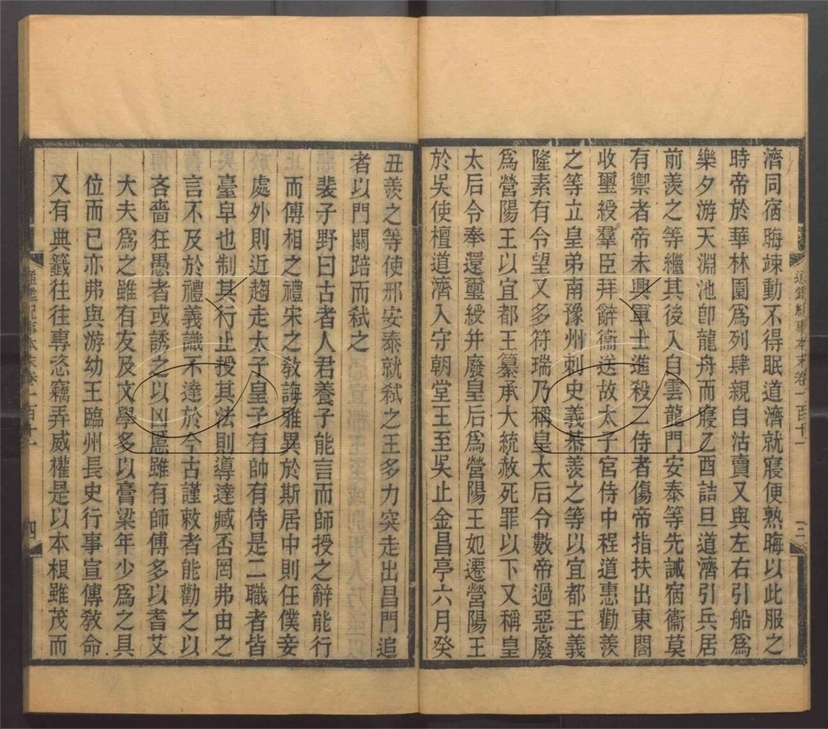 濟同宿晦竦動不得眠道濟就寢便熟晦以此服之
時帝於華林園爲列肆親自沽賣又與左右引船爲
樂夕游天淵池卽龍舟而寢乙酉詰旦道濟引兵居
前羨之等繼其後入自雲龍門安泰等先誡宿衞莫
有禦者帝未興軍士進殺二侍者傷帝指扶出東閤
收璽綬羣臣拜辭衞送故太子宮侍中程道惠勸羨
之等立皇弟南豫州刺史義恭羨之等以宜都王義
隆素有令望又多符瑞乃稱皇太后令數帝過惡廢
爲營陽王以宜都王纂承大統赦死罪以下又稱皇
太后令奉還璽綬并廢皇后爲營陽王妃遷營陽王
於吳使檀道濟入守朝堂王至吳止金昌亭六月癸
通鑑紀事本末卷一百十一
三
丑羨之等使邢安泰就弒之王多力突走出昌門追
者以門關踣而弒之
裴子野曰古者人君養子能言而師授之辭能行
而傅相之禮宋之敎誨雅異於斯居中則任僕妾
處外則近趨走太子皇子有帥有侍是二職者皆
臺皁也制其行止授其法則導達臧否罔弗由之
言不及於禮義識不達於今古謹敕者能勸之以
吝嗇狂愚者或誘之以凶慝雖有師傅多以耆艾
大夫爲之雖有友及文學多以膏粱年少爲之具
位而已亦弗與游幼王臨州長史行事宣傳敎命
又有典籤往往專恣竊弄威權是以本根雖茂而
通鑑紀事本末卷一百十一
四